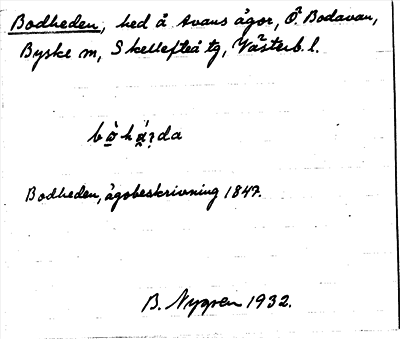 Bodheden, hed å Avans ägor, Ö. Bodavan,
Byske m, Skellefteå tg, Västerb. l.
Bodheden, ägobeskrivning 1847.
B. Nygren 1932.